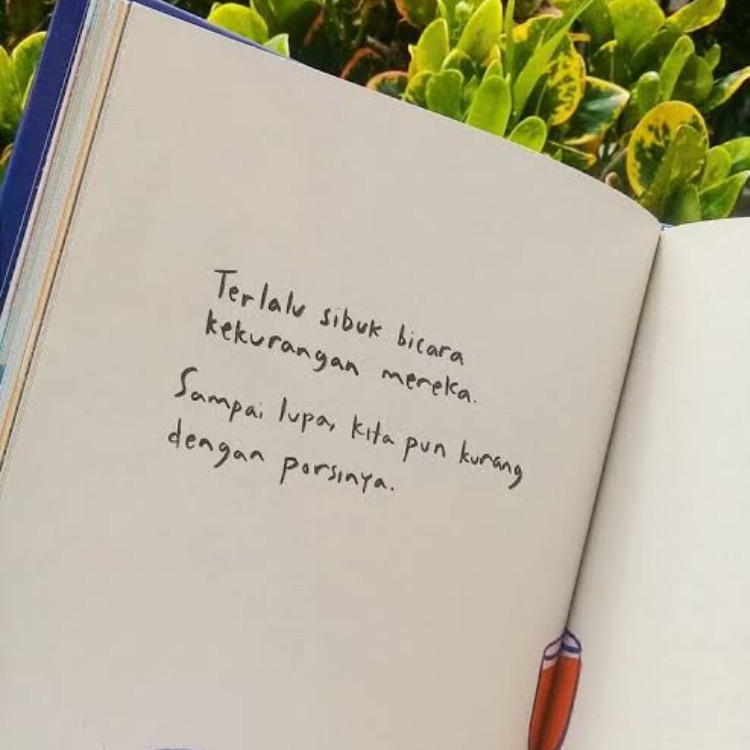 Terlalu sibuk bicara
kekurangan mereka.
Sampai lupa, kita pun kurang
dengan porsinya.